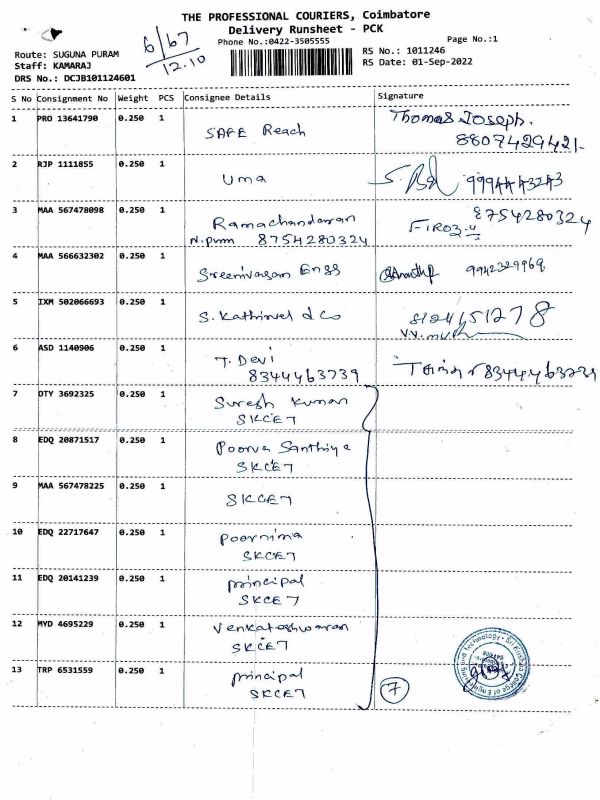 THE PROFESSIONAL COURIERS, Coimbatore
Delivery Runsheet - PCK
Phone No.:0422-3505555 Page No.:1
6/67
12.10
Route: SUGUNA PURAM
Staff: KAMARAJ
DRS No.: DCJB101124601
RS No.: 1011246
RS Date: 01-Sep-2022
S No Consignment No Weight PCS Consignee Details Signature
1 PRO 13641790 0.250 1 SAFE Reach Thomas Joseph.
8807429421.
2 RJP 1111855 0.250 1 Uma
3 MAA 567478098 0.250 1 Ramachandran FIROZ 8754280324
N.pum 8754280324
4 MAA 566632302 0.250 1 Sreenivasan Engg 9942329969
5 IXM 502066693 0.250 1 S. Kathirvel & Co 8124651278
6 ASD 1140906 0.250 1 T. Devi
8344463739 8344463739
7 DTY 3692325 0.250 1 Suresh Kumar
SKCET
8 EDQ 20871517 0.250 1 Poorva Santhiya
SKCET
9 MAA 567478225 0.250 1 SKCET
10 EDQ 22717647 0.250 1 Poornima
SKCET
11 EDQ 20141239 0.250 1 principal
SKCET
12 MYD 4695229 0.250 1 Venkateshwaran
SKCET
13 TRP 6531559 0.250 1 principal
SKCET
7
Sri Krishna College of Engineering and Technology